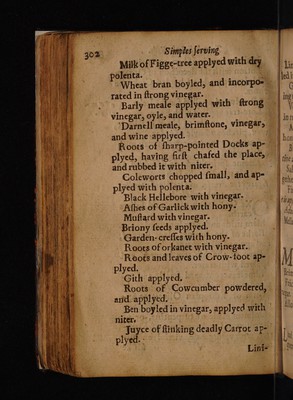 302 Simples serving
Milk of Figge-tree applyed with dry
polenta.
Wheat bran boyled, and incorpo-
rated in strong vinegar.
Barly meale applyed with strong
vinegar, oyle, and water.
Darnell meale, brimstone, vinegar,
and wine applyed.
Roots of sharp-pointed Docks ap-
plyed, having first chafed the place,
and rubbed it with niter.
Coleworts chopped small, and ap-
plyed with polenta.
Black Hellebore with vinegar.
Ashes of Garlick with hony.
Mustard with vinegar.
Briony seeds applyed.
Garden-cresses with hony.
Roots of orkanet with vinegar.
Roots and leaves of Crow-foot ap-
plyed.
Gith applyed.
Roots of Cowcumber powdered,
and applyed.
Ben boyled in vinegar, applyed with
niter.
Juyce of stinking deadly Carrot ap-
plyed.
Lini-